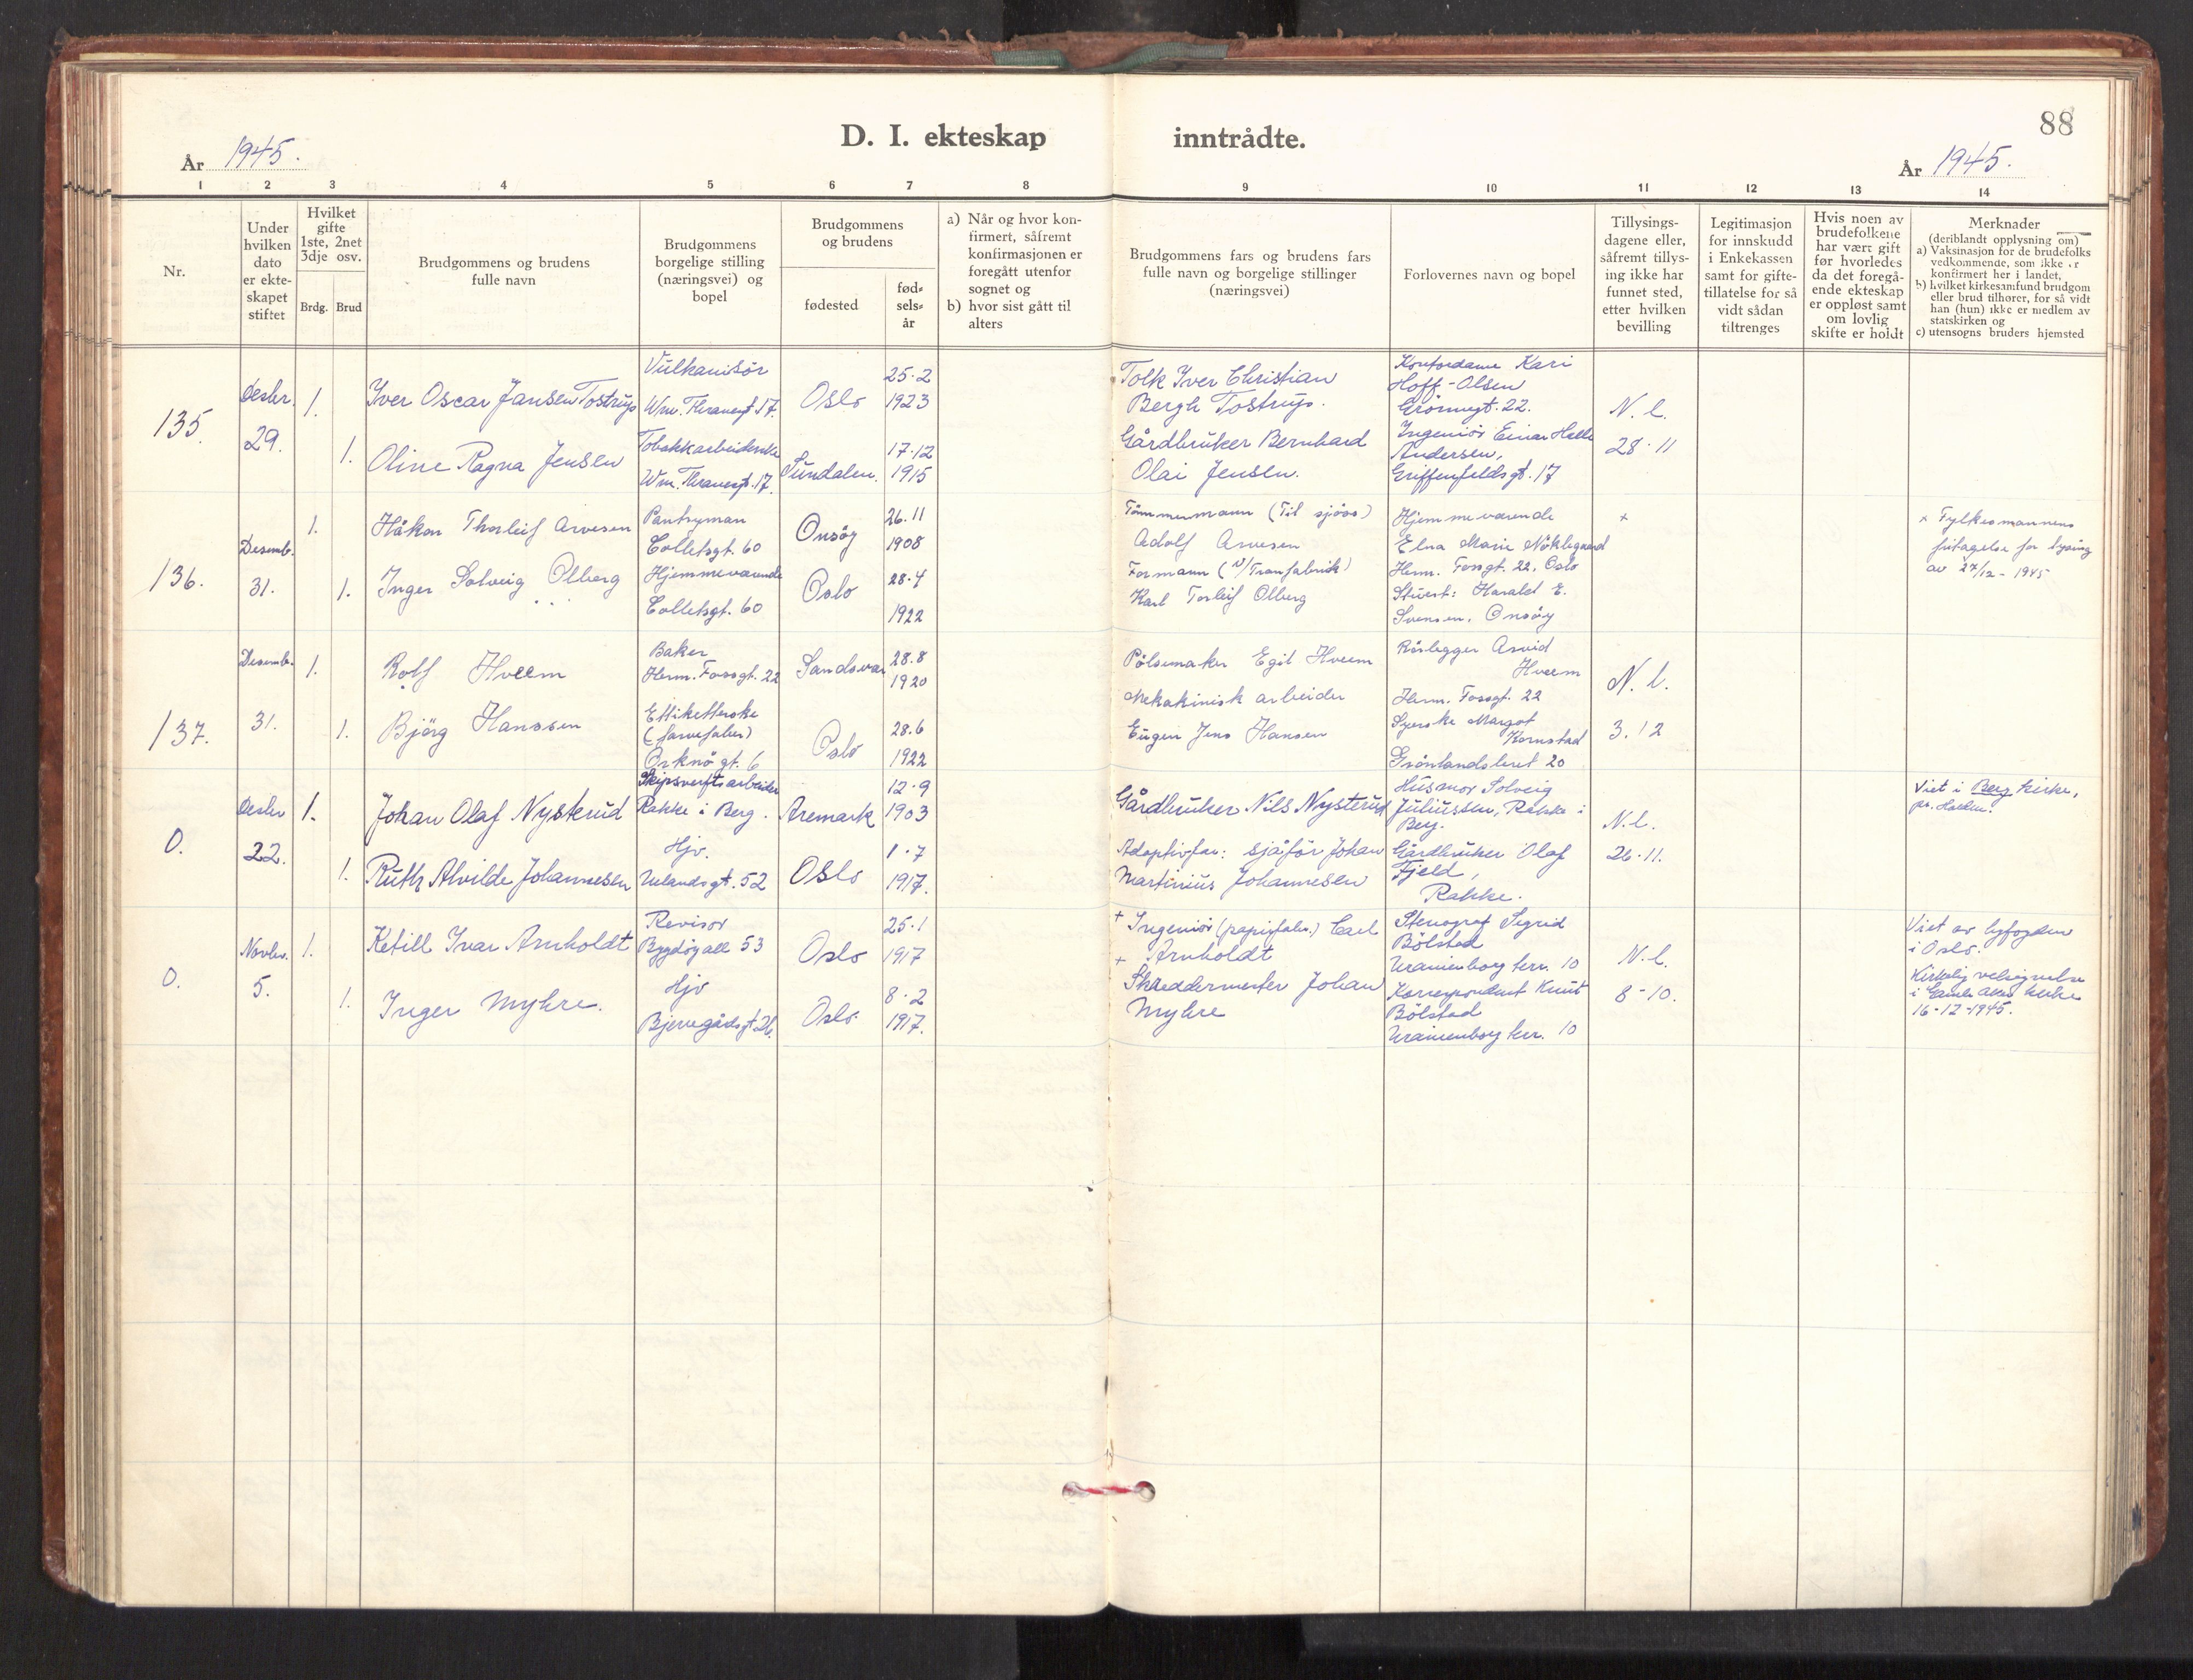 88
D. I. ekteskap inntrådte.
År 1945.
År 1945.
1 2 3 4 5 6 7 8 9 10 11 12 13 14
Nr.
Under
hvilken
dato
er ekte-
skapet
stiftet
Hvilket
gifte
1ste, 2net
3dje osv.
Brdg. Brud
Brudgommens og brudens
fulle navn
Brudgommens
borgelige stilling
(næringsvei) og
bopel
Brudgommens
og brudens
fødested
fød-
sels-
år
a) Når og hvor kon-
firmert, såfremt
konfirmasjonen er
foregått utenfor
sognet og
b) hvor sist gått til
alters
Brudgommens fars og brudens fars
fulle navn og borgelige stillinger
(næringsvei)
Forlovernes navn og bopel
Tillysings-
dagene eller,
såfremt tillys-
ing ikke har
funnet sted,
etter hvilken
bevilling
Legitimasjon
for innskudd
i Enkekassen
samt for gifte-
tillatelse for så
vidt sådan
tiltrenges
Hvis noen av
brudefolkene
har vært gift
før hvorledes
da det foregå-
ende ekteskap
er oppløst samt
om lovlig
skifte er holdt
Merknader
(deriblandt opplysning om)
a) Vaksinasjon for de brudefolks
vedkommende, som ikke er
konfirmert her i landet,
b) hvilket kirkesamfund brudgom
eller brud tilhører, for så vidt
han (hun) ikke er medlem av
statskirken og
c) utensogns bruders hjemsted
135.
Desbr.
29.
1.
Iver Oscar Jansen Tostrup
Vulkanisør
Wm. Thranesgt. 17.
Oslo
25.2
1923
1.
Oline Ragna Jensen
Tobakkarbeiderske
Wm. Thranesgt. 17.
Sundalen.
17.12
1915
Tolk Iver Christian
Bergh Tostrup.
Gårdbruker Bernhard
Olai Jensen.
Kontordame Kari
Hoff-Olsen
Grönnegt. 22.
Ingeniör Einar Halle
Andersen,
Griffenfeldsgt. 17
N. l.
28.11
136.
Desemb.
31.
1.
Håkon Thorleif Arvesen
Pantryman
Colletsgt. 60
Onsöy
26.11
1908
1.
Inger Solveig Olberg
Hjemmeværende
Colletsgt. 60
Oslo
28.4
1922
Tömmermann (Til sjöss)
Adolf Arvesen
Formann (Tranfabrik)
Karl Torleif Olberg
Hjemmeværende
Elna Marie Nöklegaard
Herm. Fossgt. 22, Oslo
Stuert: Harald E.
Svensen, Onsöy
+
+ Fylkesmannens
fritagelse for lysing
av 27/12 - 1945
137.
Desemb.
31.
1.
Rolf Hveem
Baker
Herm. Fossgt. 22
Sandsvær
28.8
1920
1.
Björg Hanssen
Ettiketterske
(farvefabr.)
Orknögt. 6
Oslo
28.6
1922
Pölsemaker Egil Hveem
Mekakinisk arbeider
Eugen Jens Hansen
Rörlegger Arvid
Hveem
Herm. Fossgt. 22
Syerske Margot
Kornstad
Grönlandsleret 20
N. l.
3.12
0.
Desbr
22.
1.
Johan Olaf Nysterud
Skipsverftsarbeider
Rakke i Berg.
Aremark
12.9
1903
1.
Ruth Alvilde Johannesen
Hjv.
Uelandsgt. 52
Oslo
1.7
1917.
Gårdbruker Nils Nysterud
Adoptivfar: sjåför Johan
Martinius Johannesen
Husmor Solveig
Juliussen, Rakke i
Berg.
Gårdbruker Olaf
Fjeld,
Rakke.
N. l.
26.11.
Viet i Berg kirke,
pr. Halden.
0.
Novbr.
5.
1.
Ketill Ivar Arnholdt
Revisor
Bygdöy allé 53
Oslo
25.1
1917
1.
Inger Myhre.
Hjv
Bjerregådsgt 26.
Oslo
8.2
1917.
+ Ingeniör (papirfabr.) Carl
Arnholdt
+ Skreddermester Johan
Myhre
Stenograf Sigrid
Bölstad
Uranienborg terr. 10
Korrespondent Knut
Bölstad
Uranienborg terr. 10
N. l.
8-10.
Viet av byfogden
i Oslo.
Kirkelig velsignelse
i Gamle Aker kirke
16-12-1945.